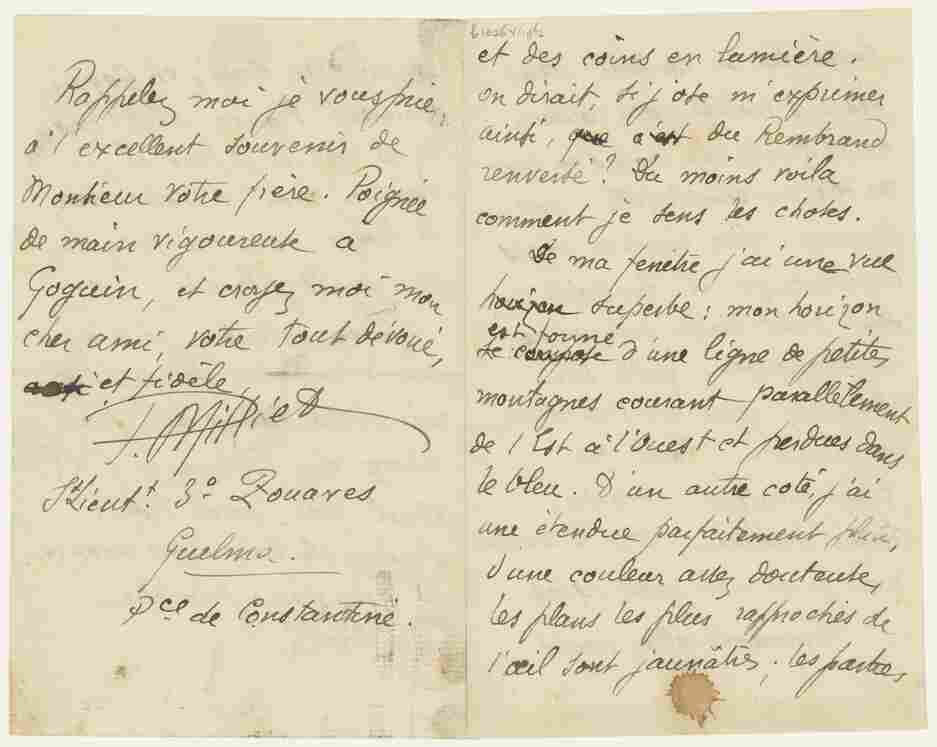 Rappelez moi je vous prie,
à l'excellent souvenir de
Monsieur votre frère. Poignée
de main vigoureuse a
Goguin, et croyez moi mon
cher ami, votre tout dévoué,
et fidèle,
P. Milliet
S/Lieut^t. 3° Zouaves
Guelma.
P^ce de Constantine.
et des coins en lumière.
on dirait, si j'ose m'exprimer
ainsi, que c'est du Rembrand
renversé? Du moins voila
comment je sens les choses.
De ma fenêtre j'ai une vue
horizon superbe: mon horizon
est formé
se compose d'une ligne de petites
montagnes courant parallèlement
de l'Est à l'Ouest et perdues dans
le bleu. D'un autre coté, j'ai
une étendue parfaitement
d'une couleur assez douteuse,
les plans les plus rapprochés de
l'œil sont jaunâtres, les parties,